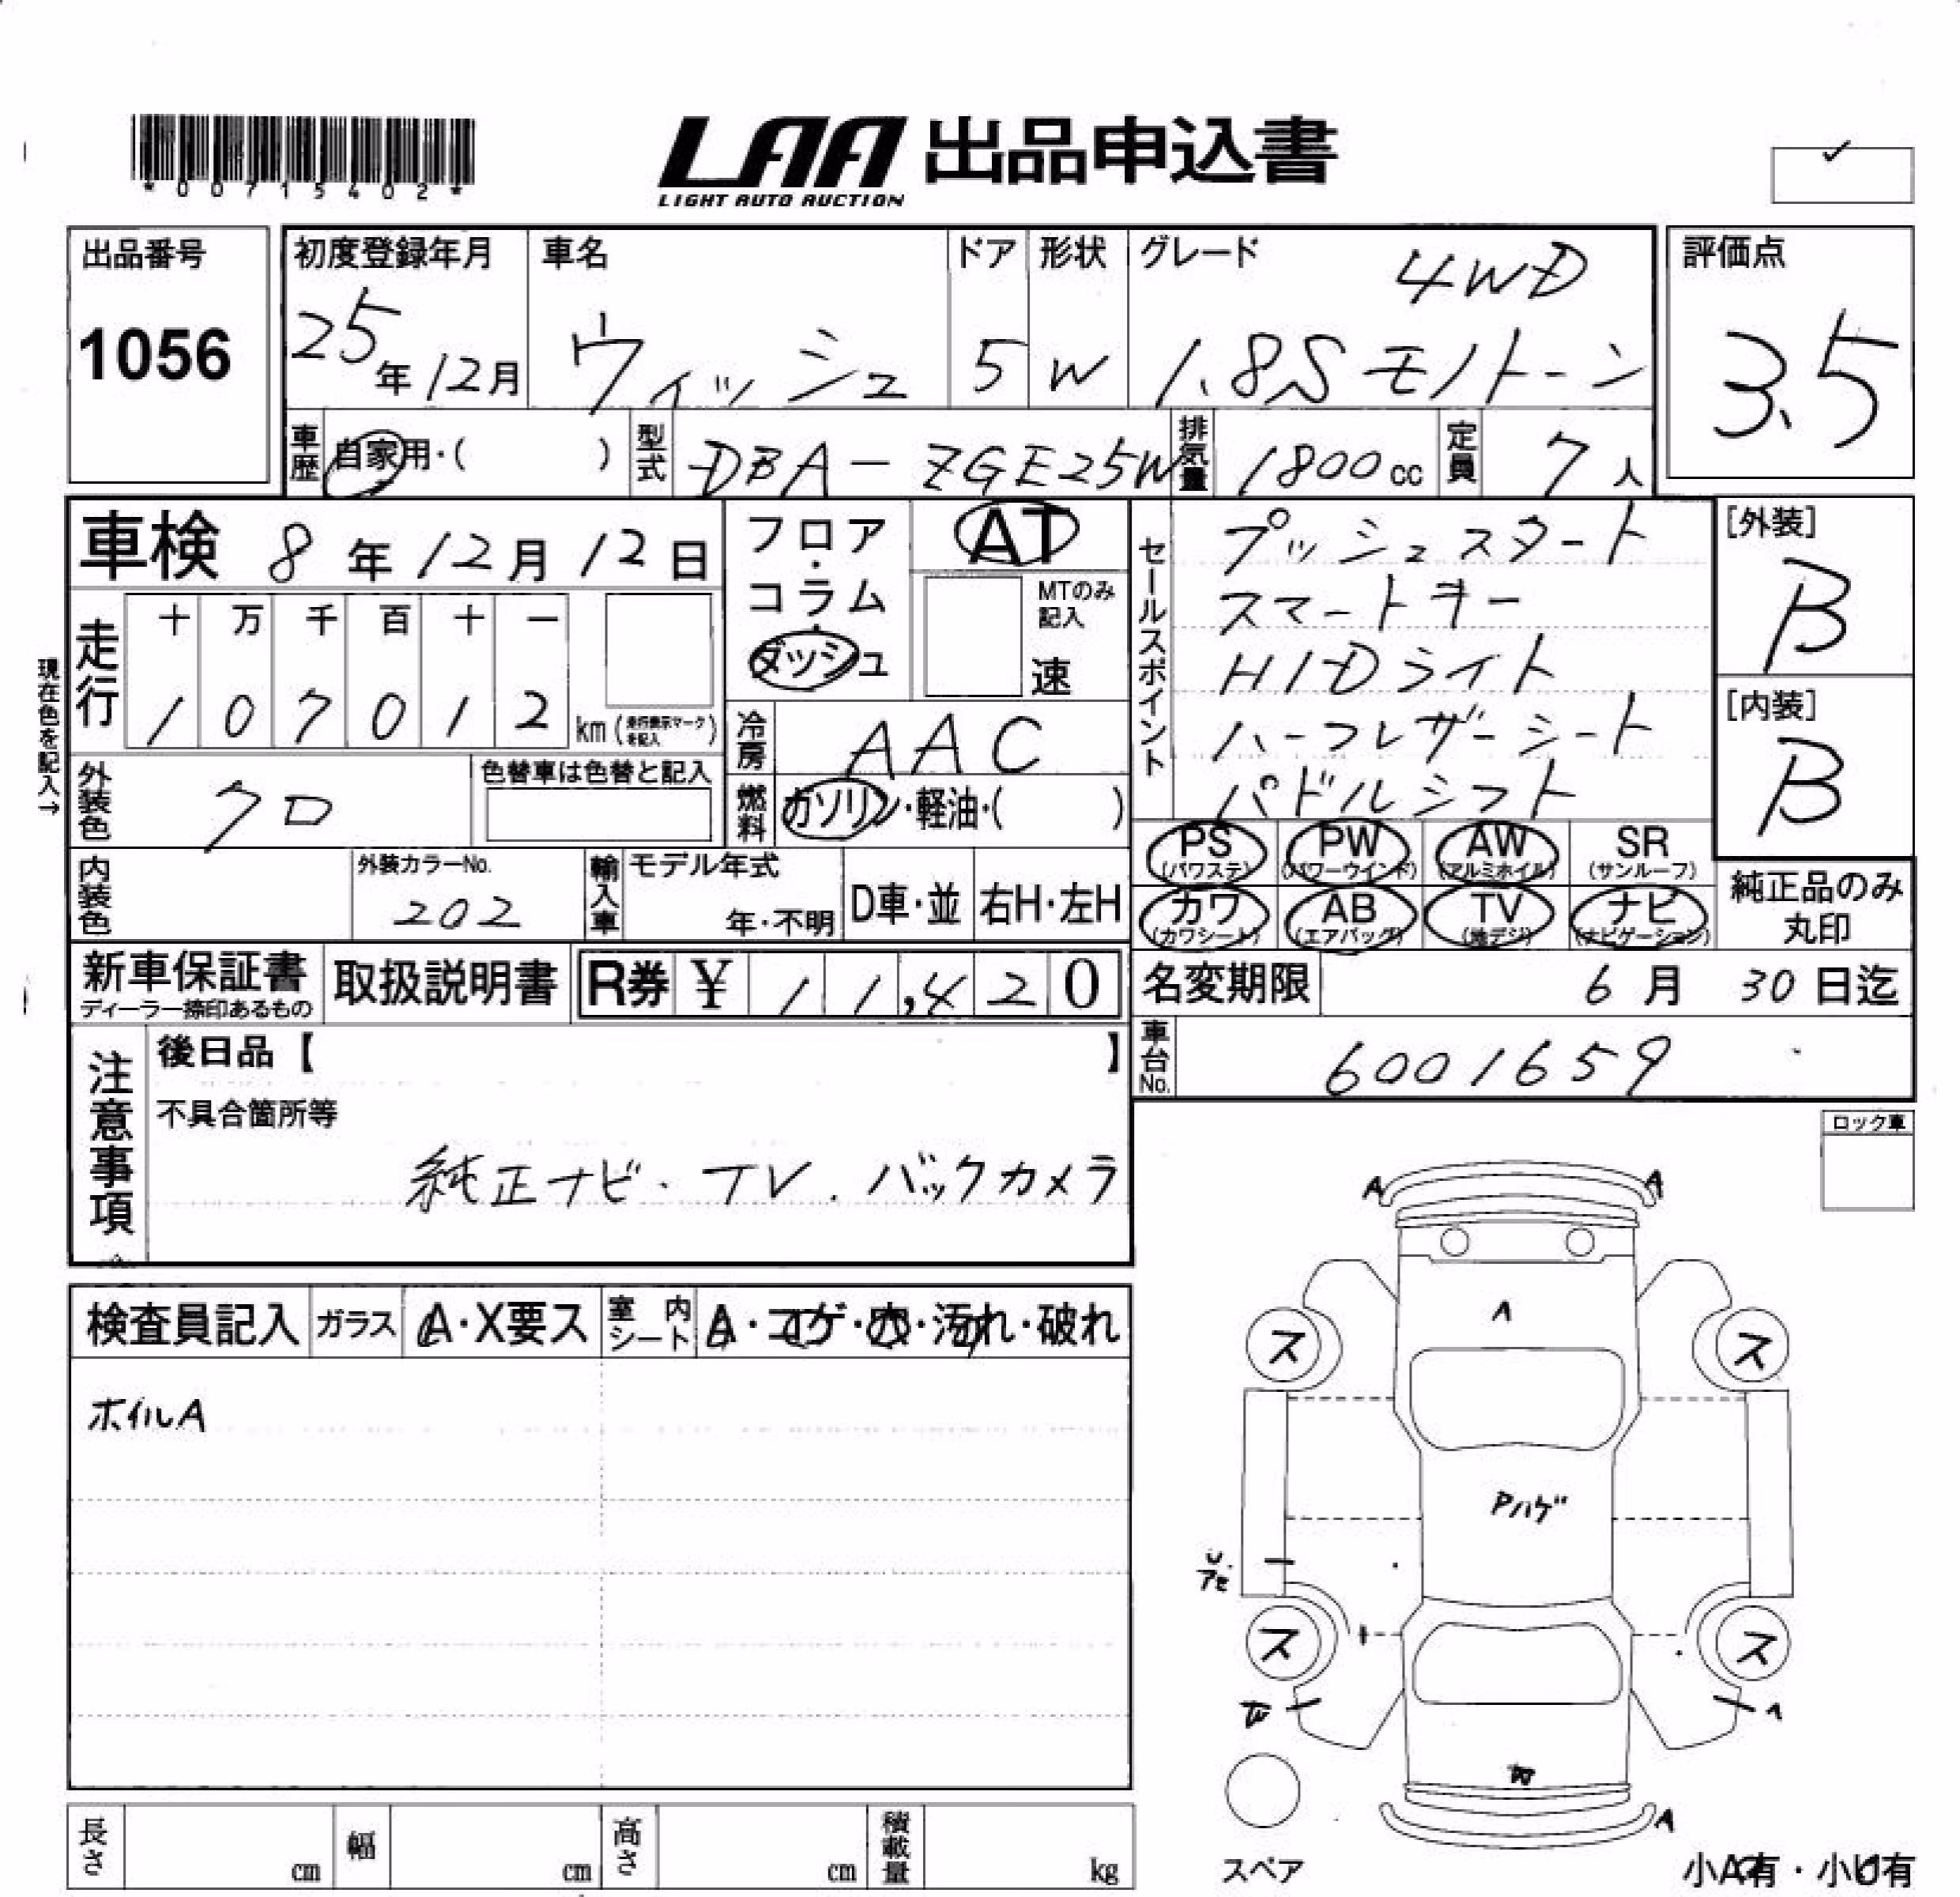 *00715402*
LAA 出品申込書
LIGHT AUTO AUCTION
出品番号
1056
初度登録年月
25年12月
車名
ウィッシュ
ドア
5
形状
W
グレード
4WD
1.8S モノトーン
評価点
3.5
車歴
自家用・( )
型式
DBA-ZGE25W
排気量
1800cc
定員
7人
車検 8年12月12日
走行
十 万 千 百 十 一
1 0 7 0 1 2
km(走行表示マークを記入)
現在色を記入→
外装色
クロ
色替車は色替と記入
内装色
外装カラーNo.
202
フロア・コラム・ダッシュ
AT
MTのみ記入
速
冷房
AAC
燃料
ガソリン・軽油・( )
輸入車
モデル年式
年・不明
D車・並
右H・左H
セールスポイント
プッシュスタート
スマートキー
HIDライト
ハーフレザーシート
パドルシフト
[外装]
B
[内装]
B
PS(パワステ)
PW(パワーウインド)
AW(アルミホイル)
SR(サンルーフ)
カワ(カワシート)
AB(エアバッグ)
TV(地デジ)
ナビ(ナビゲーション)
純正品のみ丸印
新車保証書
ディーラー捺印あるもの
取扱説明書
R券 ¥11,420
名変期限 6月30日迄
車台No.
6001659
注意事項
後日品【 】
不具合箇所等
純正ナビ・TV.バックカメラ
ロック車
検査員記入
ガラス
A・X要ス
室内シート
A・コゲ・穴・汚れ・破れ
ホイルA
A
A
A
ス
ス
Pハゲ
ス
ス
A
スペア
小A有・小U有
長さ cm
幅 cm
高さ cm
積載量 kg